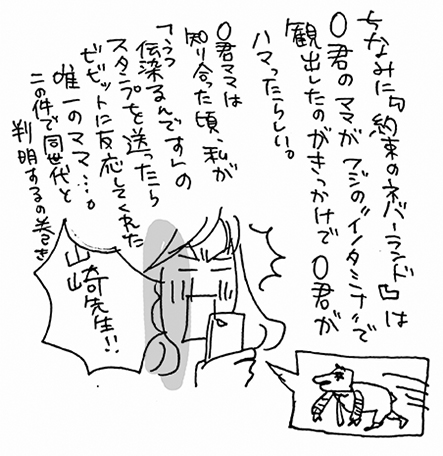 ちなみに「約束のネバーランド」は
〇君のママがフジの"ノイタミナ"で
観出したのがきっかけで〇君が
ハマったらしい。
〇君ママは
知り合った頃、私が
「うつ
伝染るんです」の
スタンプを送ったら
ゼゼットに反応してくれた
唯一のママ…。
この件で同世代と
判明するの巻き
山崎先生!!